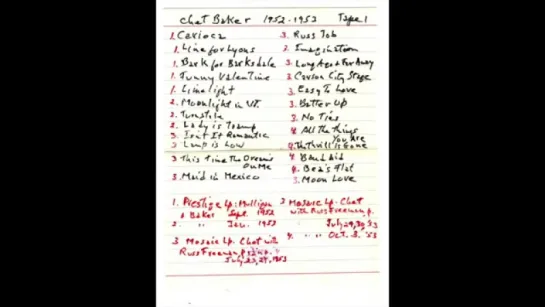 Chet Baker 1952-1953 Tape 1
1. Carioca
1. Line for Lyons
1. Bark for Barksdale
1. Funny Valentine
1. Limelight
2. Moonlight in VT.
2. Turnstile
2. Lady is Tramp
3. Isn't It Romantic
3. Lamp is Low
3. This Time The Dream's On Me
3. Maid in Mexico
3. Russ Job
2. Imagination
3. Long Ago & Far Away
3 Carson City Stage
3. Easy To Love
3. Batter Up
3. No Ties
4. All the Things You Are
4. Thrill Is Gone
4. Band Aid
4. Bea's Flat
3. Moon Love
1. Prestige Lp: Mulligan & Baker Sept. 1952
2. " " Jan. 1953
3 Mosaic Lp. Chet with Russ Freeman p.
July 1953
3 Mosaic Lp. Chet with Russ Freeman p.
July 29, 30, 53
4. " " Oct. 3. 53